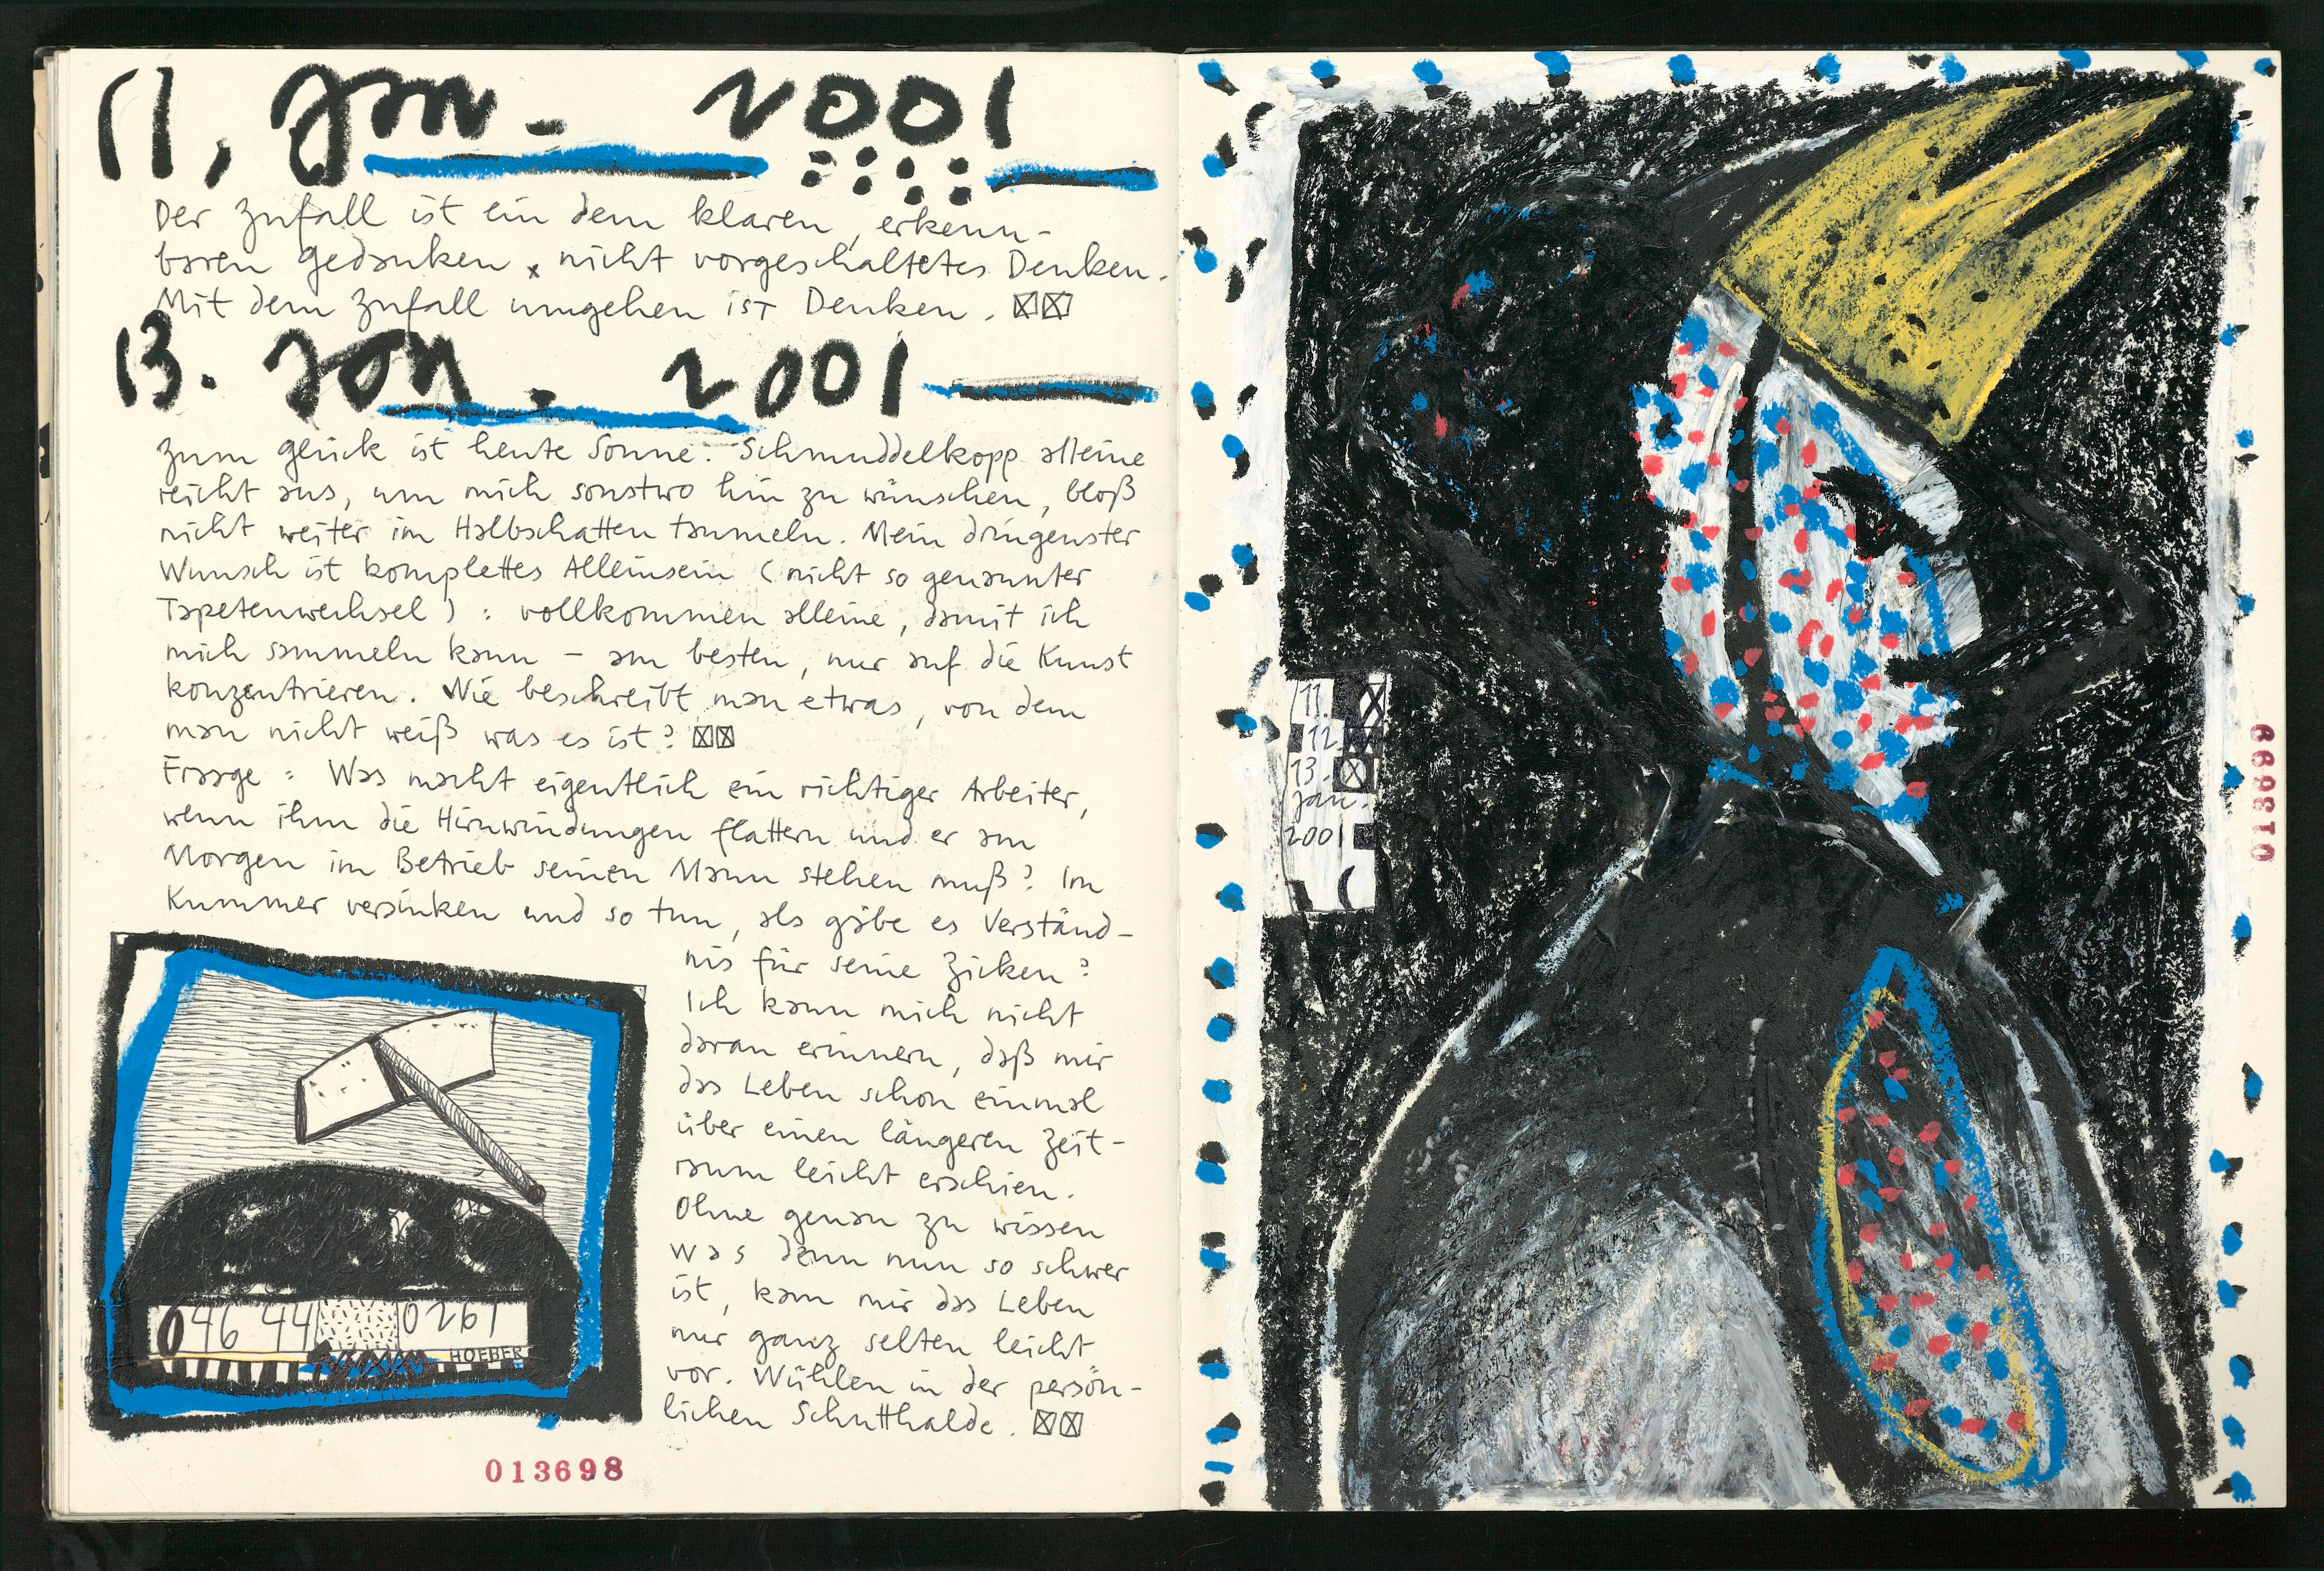 11, Jan. 2001
Der Zufall ist ein dem klaren, erkenn-
baren Gedanken x nicht vorgeschaltetes Denken.
Mit dem Zufall umgehen ist Denken. ☒☒
13. Jan. 2001
Zum Glück ist heute Sonne. Schmuddelkopp alleine
reicht aus, um mich sonstwo hin zu wünschen, bloß
nicht weiter im Halbschatten taumeln. Mein dringenster
Wunsch ist komplettes Alleinsein (nicht so genannter
Tapetenwechsel) : vollkommen alleine, damit ich
mich sammeln kann – am besten, nur auf die Kunst
konzentrieren. Wie beschreibt man etwas, von dem
man nicht weiß was es ist? ☒☒
Frage : Was macht eigentlich ein richtiger Arbeiter,
wenn ihm die Hirnwindungen flattern und er am
Morgen im Betrieb seinen Mann stehen muß? Im
Kummer versinken und so tun, als gäbe es Verständ-
nis für seine Zicken?
Ich kann mich nicht
daran erinnern, daß mir
das Leben schon einmal
über einen längeren Zeit-
raum leicht erschien.
Ohne genau zu wissen
was denn nun so schwer
ist, kam mir das Leben
nur ganz selten leicht
vor. Wühlen in der persön-
lichen Schutthalde. ☒☒
046 44 0261
HOEBER
013698
11.
12.
13.
Jan.
2001
013699